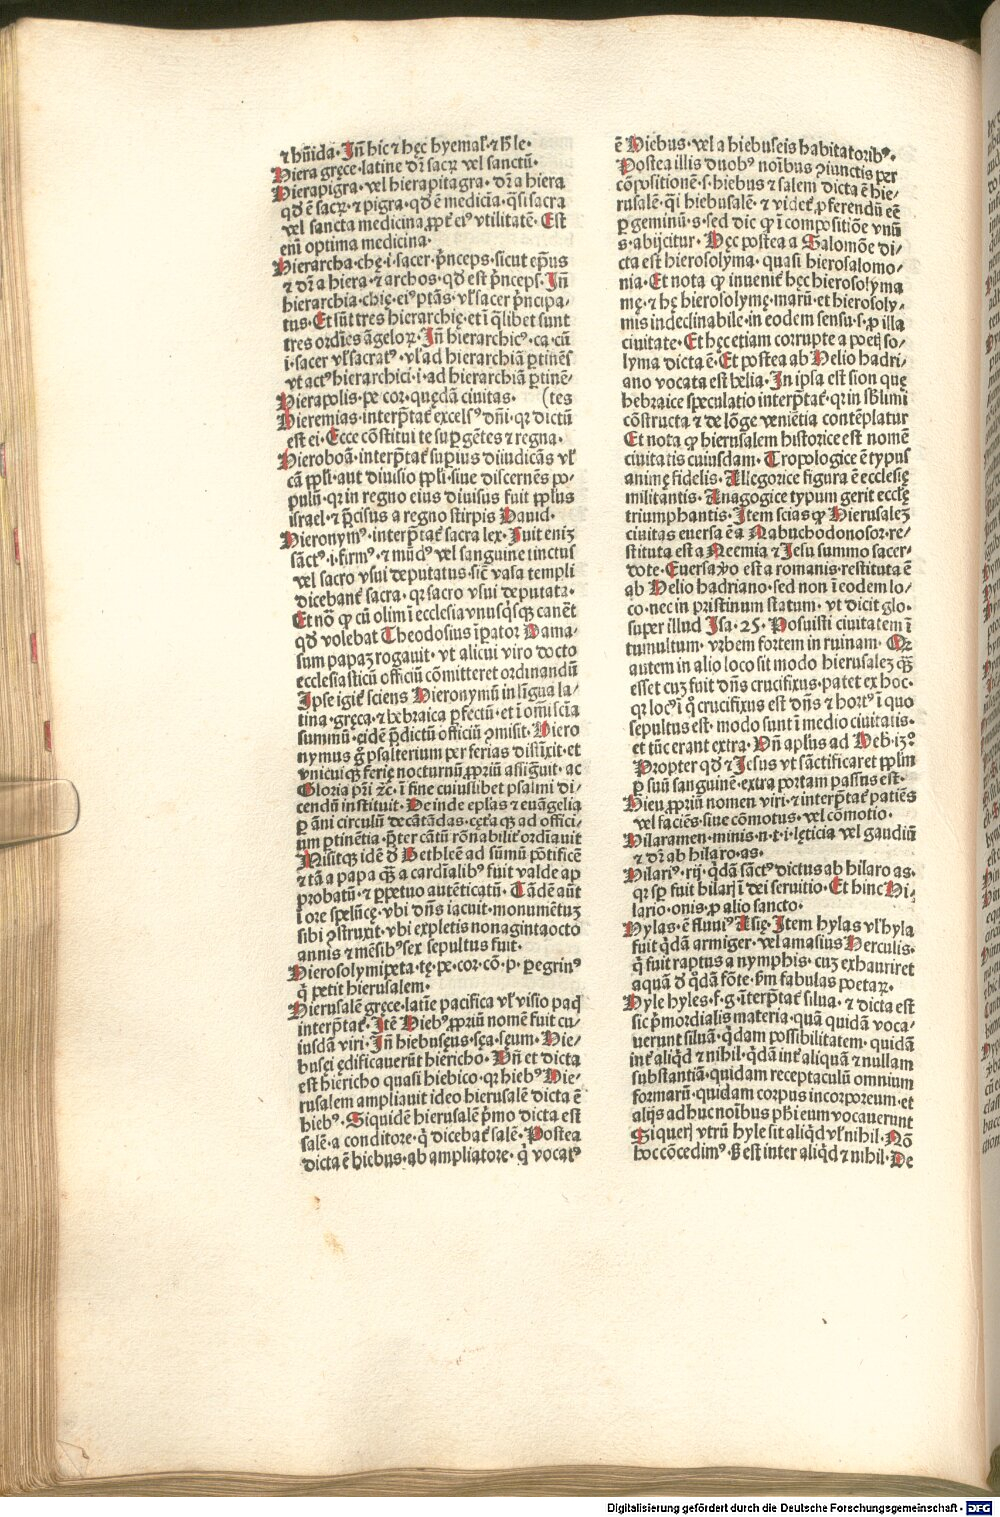 ⁊ hūida·Iñ hic ⁊ hęc hyemaľ·⁊ ħ le·
Hiera gręce·latine dr̄ sacꝝ vel sanctū·
Hierapigra·vel hierapitagra·dr̄ a hiera
qđ ē sacꝝ·⁊ pigra·qđ ē medicīa·q̄si sacra
vel sancta medicina ꝓpt̄ eiꝰ vtilitatē·Est
eni optima medicina·
Hierarcha·chę·i·sacer p̄nceps·sicut ep̄us
⁊ dr̄ a hiera·⁊ archos·qđ est p̄nceps·Iñ
hierarchia·chię·eiꝰ ptās·vľ sacer p̄ncipa-
tus·Et sūt tres hierarchię·et ī q̄libet sunt
tres ordīes āgeloꝝ·Iñ hierarchicꝰ·ca·cū
i·sacer vľ sacratꝰ·vľ ad hierarchiā ꝑtinēs
vt actꝰ hierarchici·i·ad hierarchiā ꝑtinē-
Hierapolis·pe·cor·quędā ciuitas· (tes
Hieremias·interp̄tat̄ excelsꝰ dn̄i·qꝛ dictū
est ei·Ecce cōstitui te suꝑ gētes ⁊ regna·
Hieroboā·interp̄tat̄ suꝑius diiudicās vľ
cā pp̄li·aut diuisio pp̄li·siue discernēs po-
pulū·qꝛ in regno eius diuisus fuit pp̄lus
israel·⁊ p̄cisus a regno stirpis Dauid·
Hieronymꝰ·interp̄tat̄ sacra lex·Fuit eniꝫ
sāctꝰ·i·firmꝰ·⁊ mūdꝰ vel sanguine tinctus
vel sacro vsui deputatus·sic̄ vasa templi
dicebant̄ sacra·qꝛ sacro vsui deputata·
Et nō ꝙ cū olim ī ecclesia vnusq̄sqꝫ canēt
qđ volebat Theodosius īpator Dama-
sum papaꝫ rogauit·vt alicui viro docto
ecclesiasticū officiū cōmitteret ordinandū
Ipse igit̄ sciens Hieronymū in līgua la-
tina·gręca·⁊ hebraica ꝑfectū·et ī om̄i scīa
summū·eidē p̄dictū officiū ꝯmisit·Hiero
nymus g̊ psalterium per ferias distīxit·et
vnicuiqꝫ ferię nocturnū ꝓpriū assigūit·ac
Gloria pr̄i ⁊c·ī fine cuiuslibet psalmi di-
cendū instituit·Deinde ep̄las ⁊ euāgelia
ꝑ āni circulū decātādas·cęt̄aqꝫ ad offici-
um ꝑtinētia·p̄ter cātū rōnabilit̄ ordīauit
Misitqꝫ idē đ Bethleē ad sūmū pōtificē
⁊ tā a papa q̄ꝫ a cardīalibꝰ fuit valde ap
probatū·⁊ ꝑpetuo autēticatū·Tādē aūt
ī ore spelūcę·vbi dn̄s iacuit·monumētuꝫ
sibi ꝯstruxit·vbi expletis nonagintaocto
annis ⁊ mēsibꝰ sex sepultus fuit·
Hierosolymipeta·tę·pe·cor·cō·p·ꝑegrinꝰ
q̄ petit hierusalem·
Hierusalē gręce·latīe pacifica vľ visio pacꝭ
interp̄tat̄·Itē Hiebꝰ ꝓpriū nomē fuit cu-
iusdā viri·Iñ hiebusęus·sęa·sęum·Hie-
busęi ędificauerūt hiericho·Vn̄ et dicta
est hiericho quasi hiebico·qꝛ hiebꝰ Hie-
rusalem ampliauit ideo hierusalē dicta ē
hiebꝰ·Siquidē hierusalē p̄mo dicta est
salē·a conditore·q̄ dicebat̄ salē·Postea
dicta ē hiebus·ab ampliatore·q̄ vocatꝰ
ē Hiebus·vel a hiebuseis habitatoribꝰ·
Postea illis duobꝰ noībus ꝯiunctis per
cōpositionē·s·hiebus ⁊ salem dicta ē hie-
rusalē·q̄i hiebusalē·⁊ videt̄ ꝓferendū eē
ꝑ geminū·s·sed dic ꝙ ī compositiōe vnū
s·abijcitur·Hęc postea a Salomōe di-
cta est hierosolyma·quasi hierosalomo-
nia·Et nota ꝙ inuenit̄ hęc hierosolyma
mę·⁊ hę hierosolymę·marū·et hierosoly-
mis indeclinabile·in eodem sensu·s·ꝓ illa
ciuitate·Et hęc etiam corrupte a poetꝭ so-
lyma dicta ē·Et postea ab Helio hadri-
ano vocata est helia·In ipsa est sion quę
hebraice speculatio interp̄tat̄·qꝛ in sb̄limi
cōstructa ⁊ de lōge veniētia contēplatur
Et nota ꝙ hierusalem historice est nomē
ciuitatis cuiusdam·Tropologice ē typus
animę fidelis·Allegorice figura ē ecclesię
militantis·Anagogice typum gerit eccľę
triumphantis·Item scias ꝙ Hierusaleꝫ
ciuitas euersa ē a Nabuchodonosor·re-
stituta est a Neemia ⁊ Iesu summo sacer-
dote·Euersa v̊o est a romanis·restituta ē
ab Helio hadriano·sed non ī eodem lo-
co·nec in pristinum statum·vt dicit glo·
super illud Isa·25·Posuisti ciuitatem ī
tumultum·vrbem fortem in ruinam·Qꝛ
autem in alio loco sit modo hierusaleꝫ q̄ꝫ
esset cuꝫ fuit dn̄s crucifixus·patet ex hoc·
qꝛ locꝰ ī q̊ crucifixus est dn̄s ⁊ hortꝰ ī quo
sepultus est·modo sunt ī medio ciuitatis·
et tūc erant extra·Vn̄ apl̄us ad Heb·iꝫ°
Propter qđ ⁊ Jesus vt sāctificaret pp̄lm
ꝑ suū sanguinē·extra portam passus est·
Hieu ꝓpriū nomen viri·⁊ interp̄tat̄ patiēs
vel faciēs·siue cōmotus·vel cōmotio·
Hilaramen·minis·n·t·i·lęticia vel gaudiū
⁊ dr̄ ab hilaro·as·
Hilariꝰ·rij·q̄dā sāctꝰ dictus ab hilaro as·
qꝛ sꝑ fuit hilarꝭ ī dei seruitio·Et hinc Hi-
lario·onis·ꝓ alio sancto·
Hylas·ē fluuiꝰ Asię·Item hylas vľ hyla
fuit q̄dā armiger·vel amasius Herculis·
q̄ fuit raptus a nymphis·cuꝫ exhauriret
aquā đ q̊dā fōte·ẜm fabulas poetaꝝ·
Hyle hyles·f·g·īterp̄tat̄ silua·⁊ dicta est
sic p̄mordialis materia·quā quidā voca-
uerunt siluā·q̄dam possibilitatem·quidā
int̄ aliq̄d ⁊ nihil·q̄dā int̄ aliquā ⁊ nullam
substantiā·quidam receptaculū omnium
formarū·quidam corpus incorporeum·et
alijs adhuc noībus phi eum vocauerunt
Si querꝭ vtrū hyle sit aliq̄d vľ nihil·Nō
hoc cōcedimꝰ·ẜ est inter aliq̄d ⁊ nihil·De
Digitalisierung gefördert durch die Deutsche Forschungsgemeinschaft - DFG